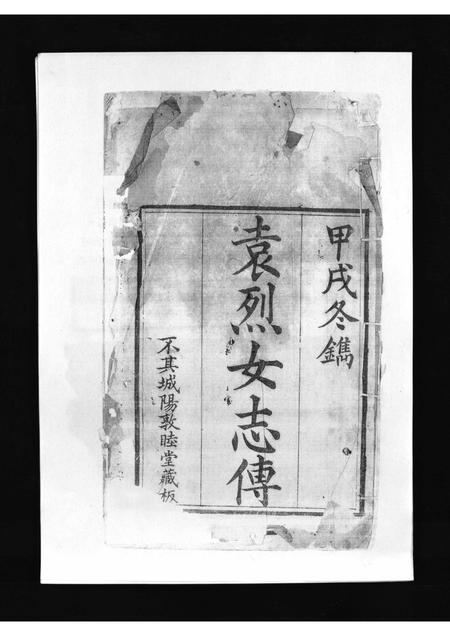 甲戌冬鐫
袁烈女志傳
不其城陽敦睦堂藏板